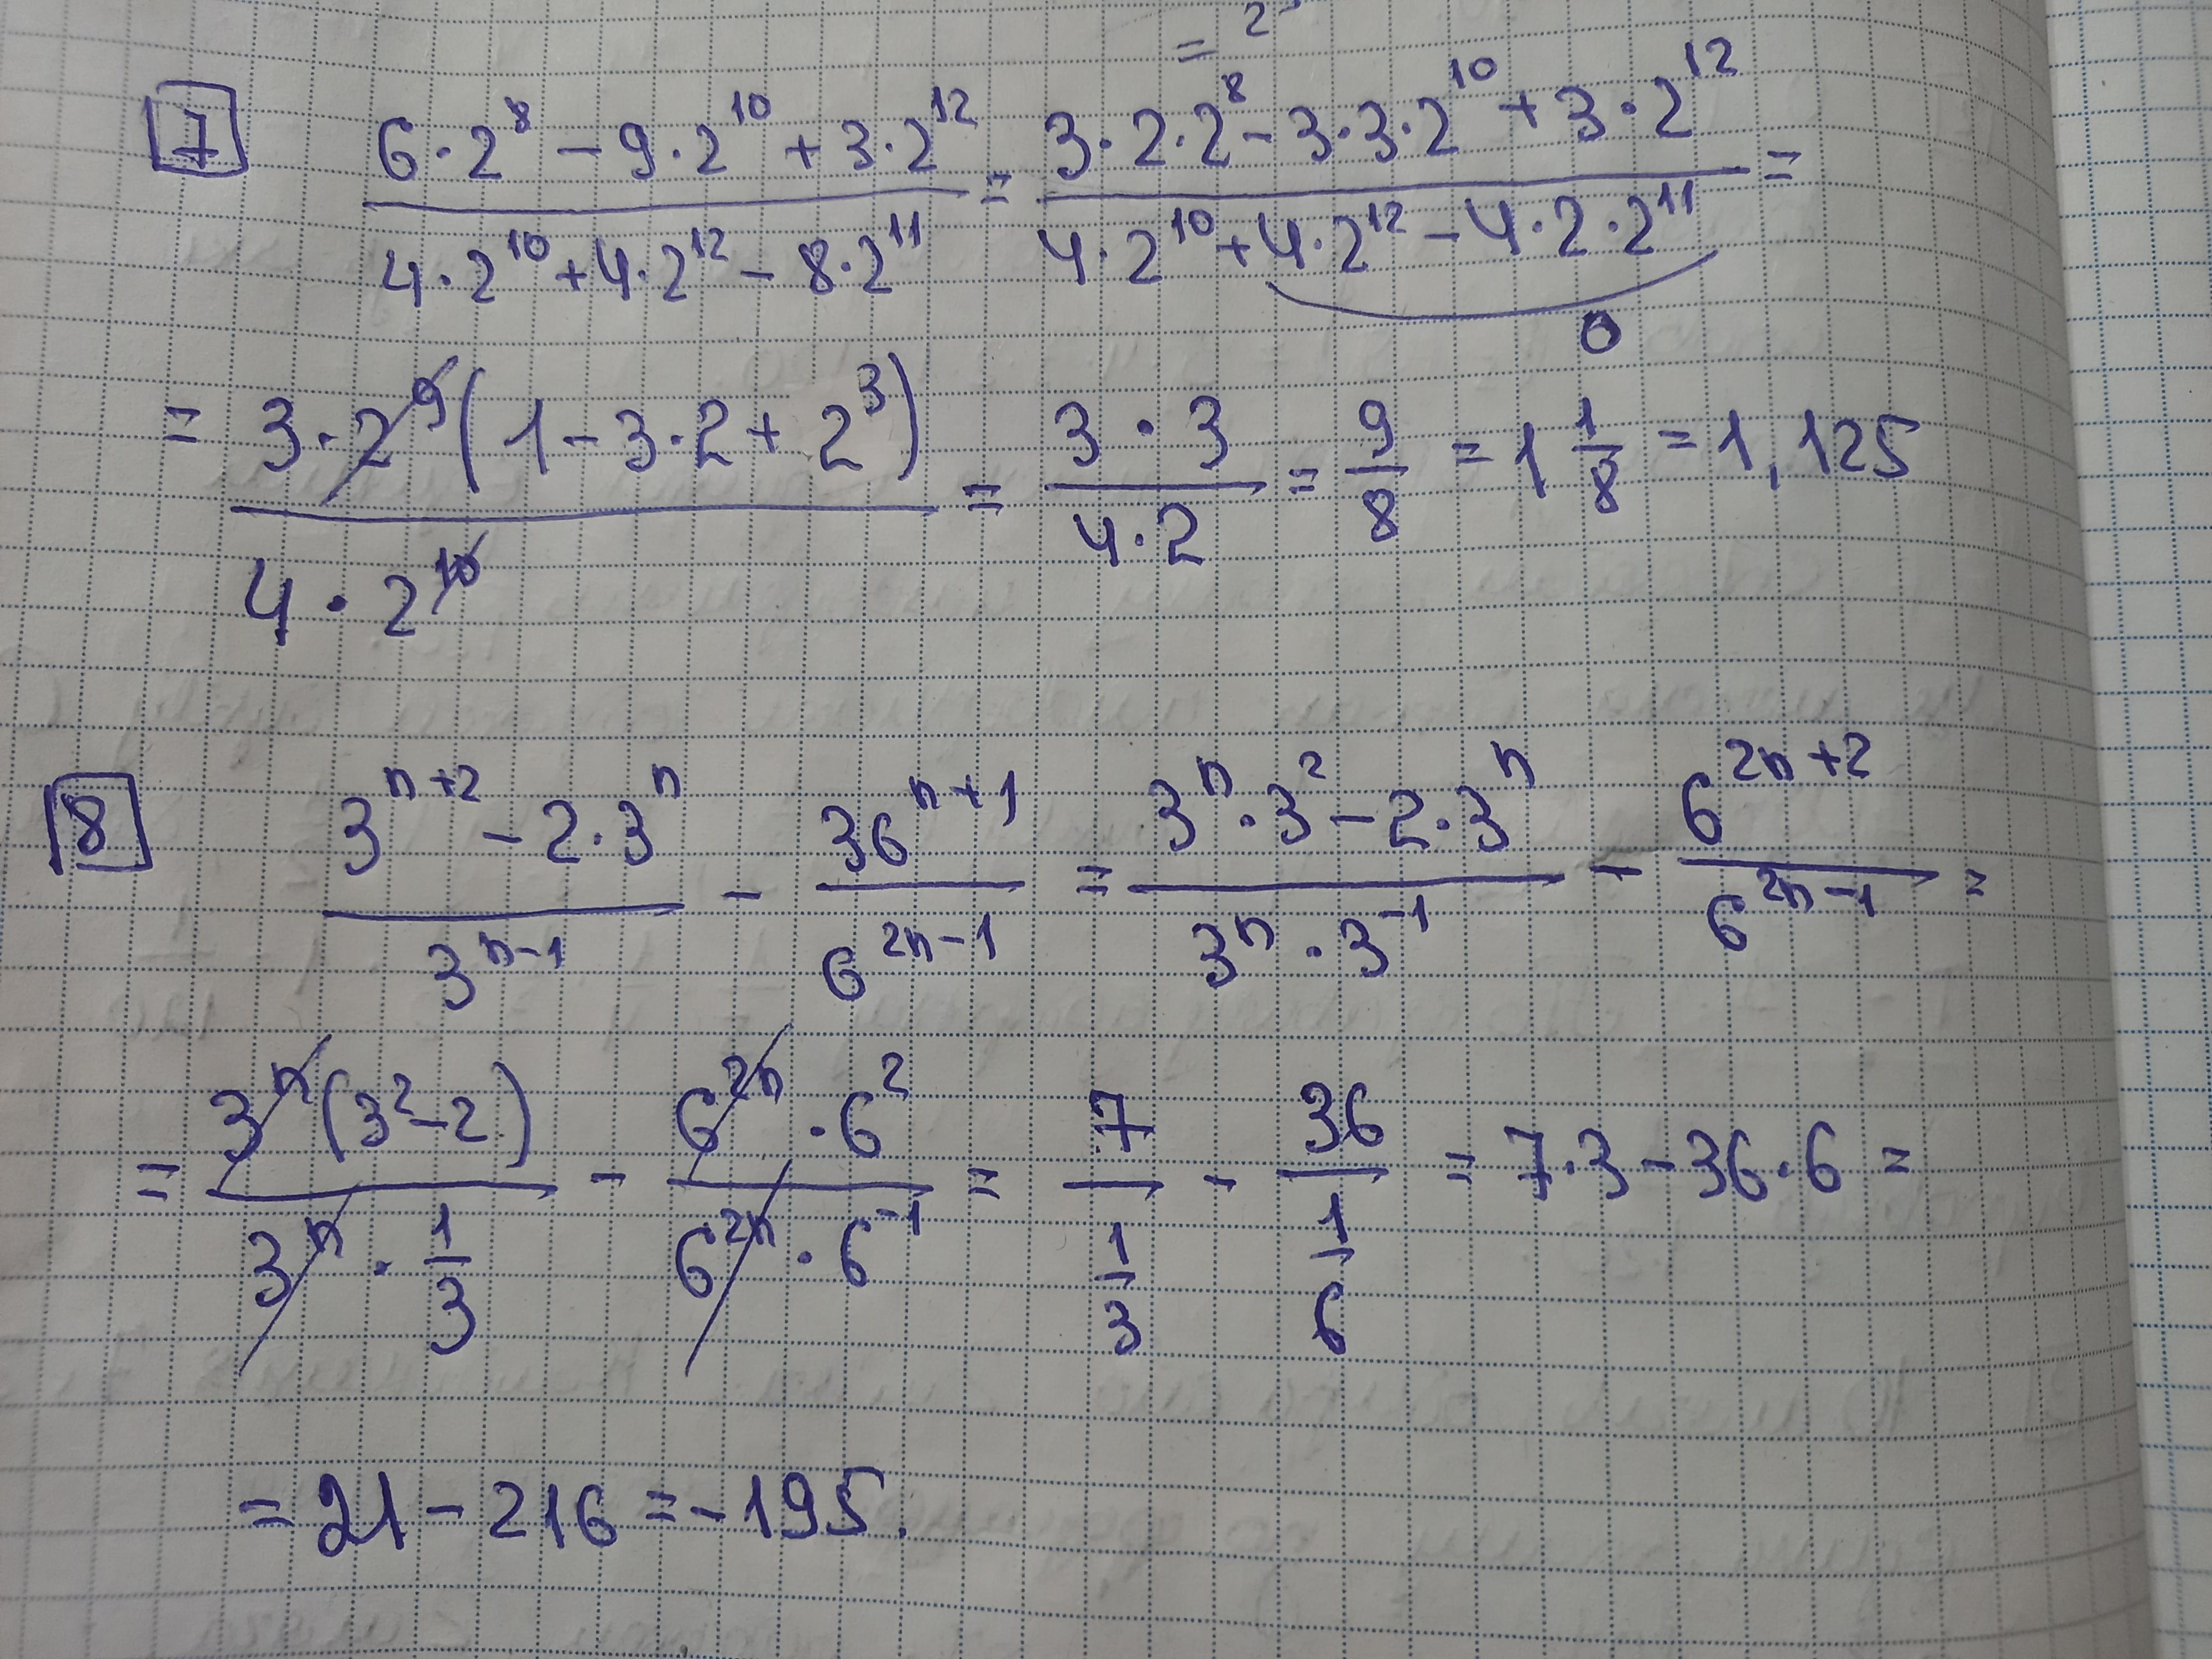 = 2
7 (6·2^8 - 9·2^10 + 3·2^12)/(4·2^10 + 4·2^12 - 8·2^11) = (3·2·2^8 - 3·3·2^10 + 3·2^12)/(4·2^10 + 4·2^12 - 4·2·2^11) =
0
= (3·2^9(1 - 3·2 + 2^3))/(4·2^10) = (3·3)/(4·2) = 9/8 = 1 1/8 = 1,125
8 (3^(n+2) - 2·3^n)/(3^(n-1)) - (36^(n+1))/(6^(2n-1)) = (3^n·3^2 - 2·3^n)/(3^n·3^(-1)) - (6^(2n+2))/(6^(2n-1)) =
= (3^n(3^2 - 2))/(3^n·1/3) - (6^(2n)·6^2)/(6^(2n)·6^(-1)) = 7/(1/3) - 36/(1/6) = 7·3 - 36·6 =
= 21 - 216 = -195.